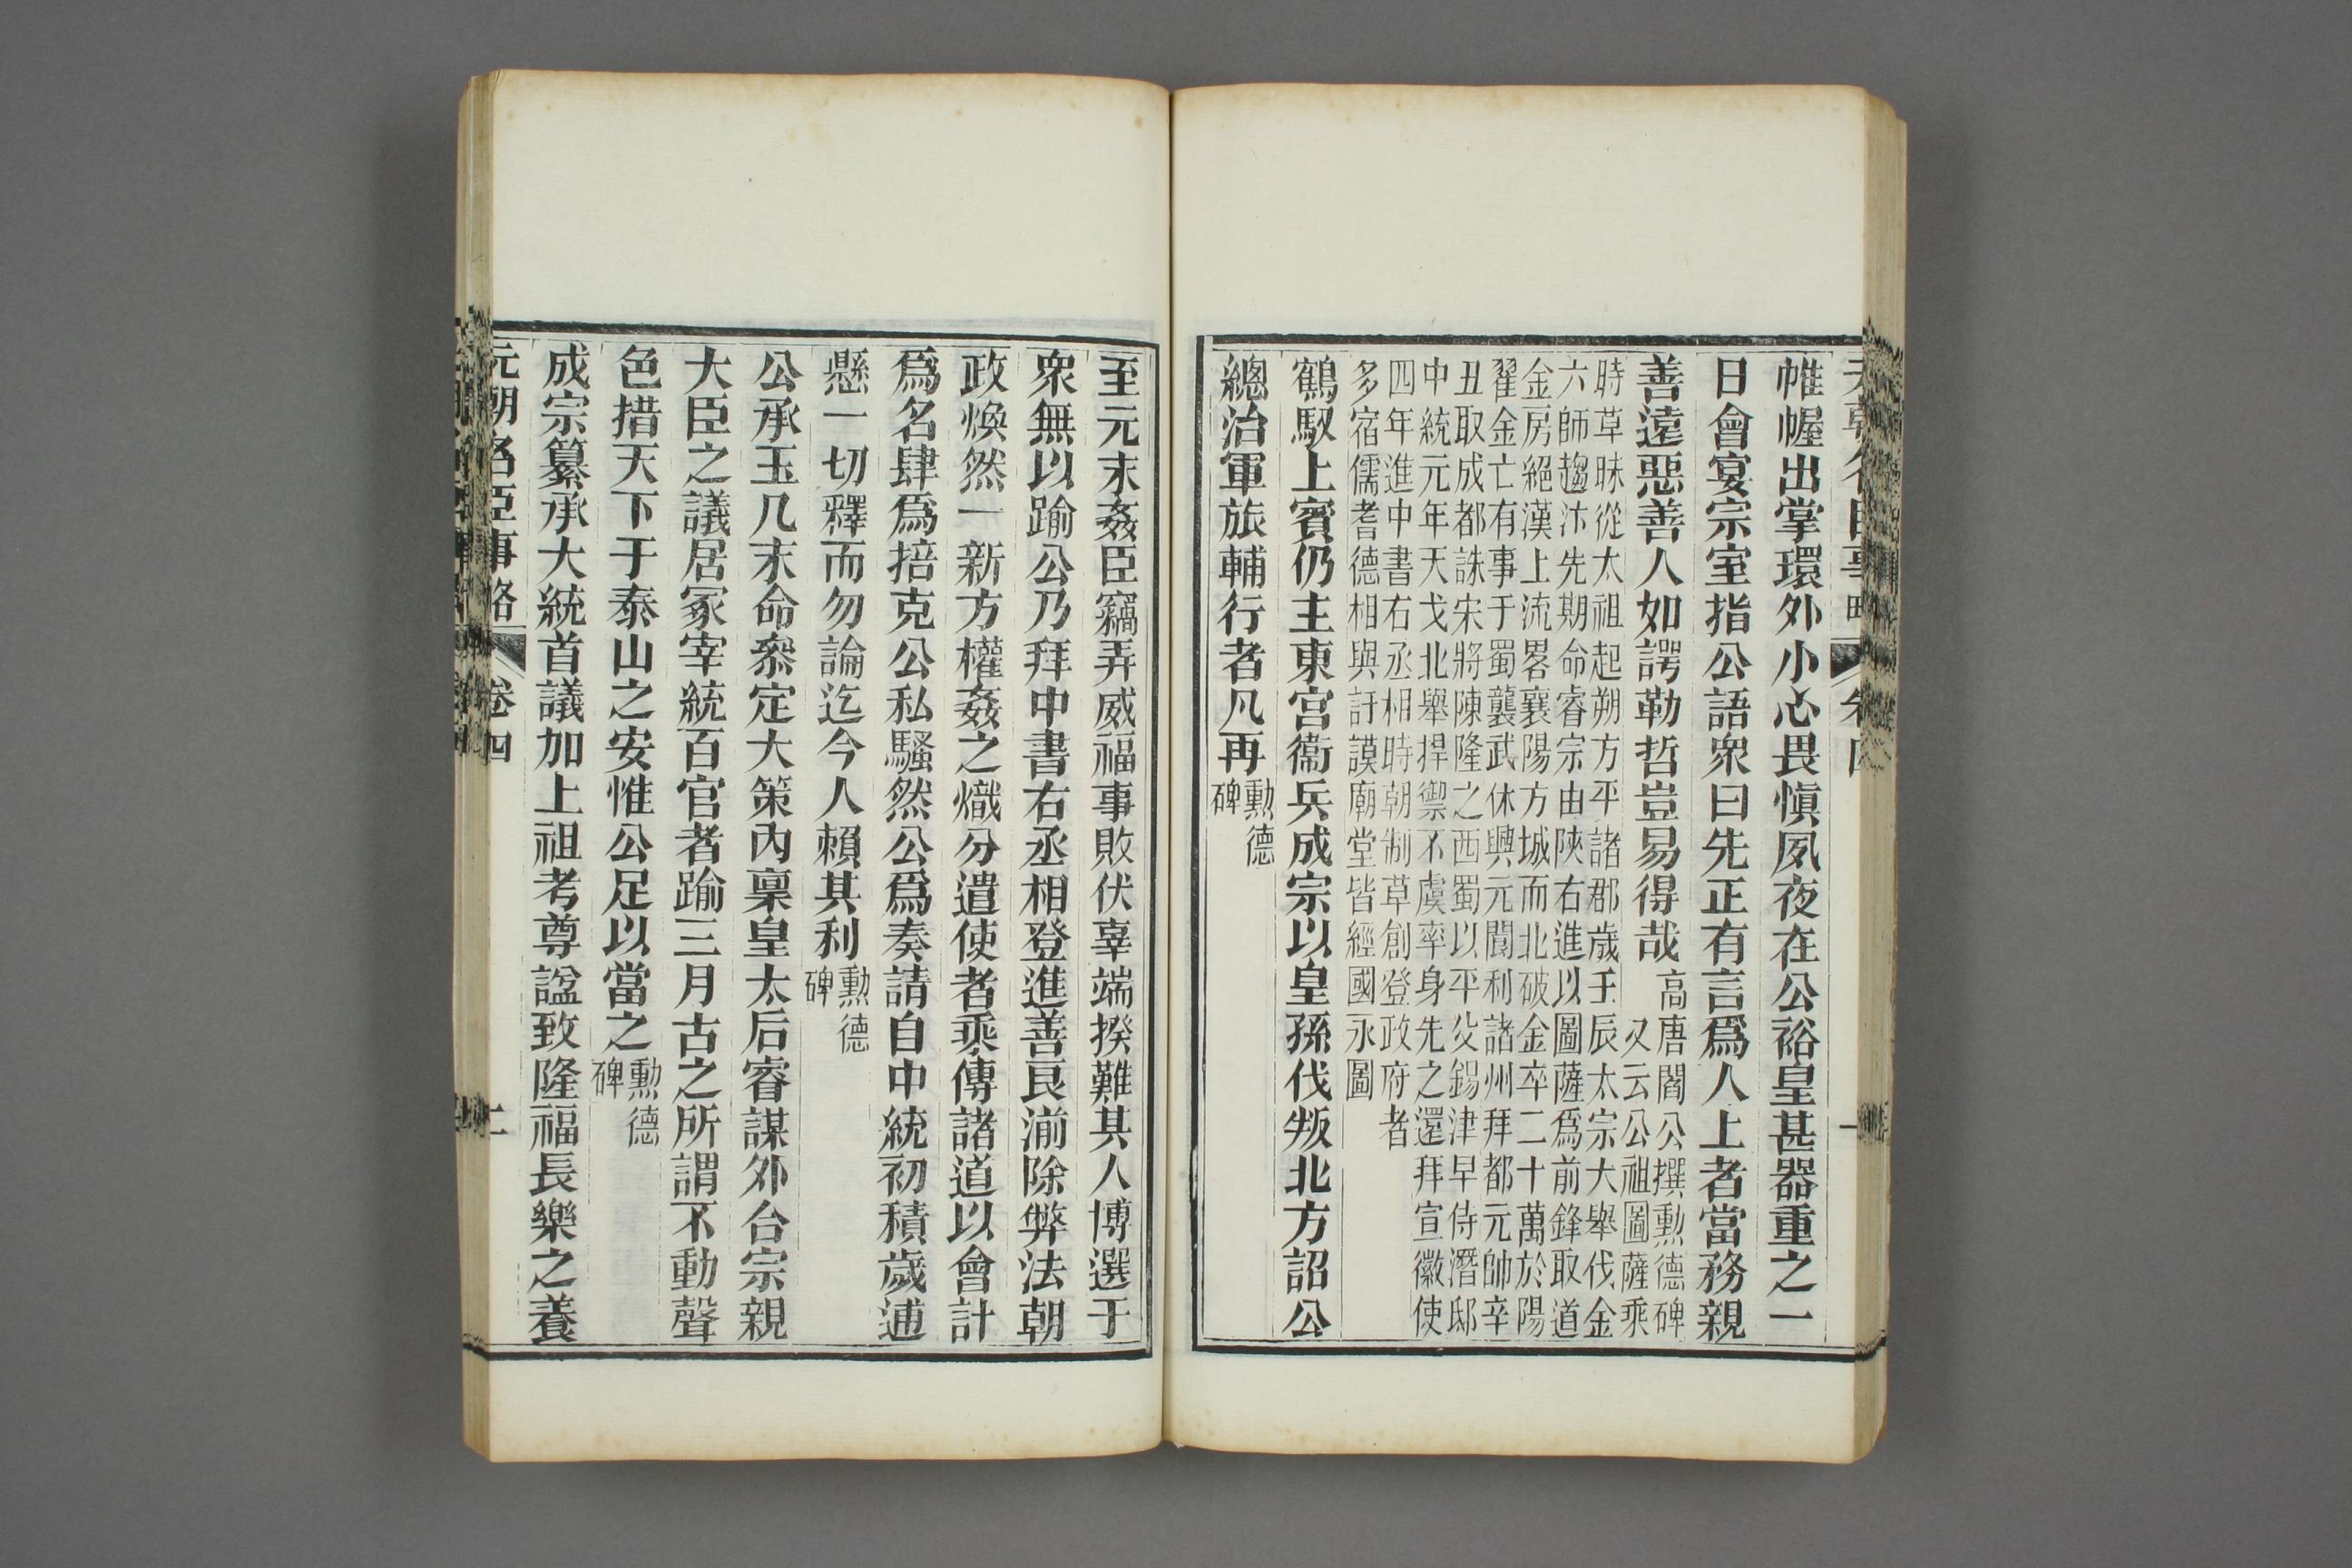 帷幄出掌環外小心畏慎夙夜在公裕皇甚器重之一
日會宴宗室指公語衆曰先正有言爲人上者當務親
善遠惡善人如諤勒哲豈易得哉
高唐閻公撰勳德碑
又云公祖圖薩乘
時草昧從太祖起朔方平諸郡歲壬辰太宗大舉伐金
六師趨汴先期命睿宗由陝右進以圖薩爲前鋒取道
金房絕漢上流畧襄陽方城而北破金卒二十萬於陽
翟金亡有事于蜀襲武休興元閬利諸州拜都元帥辛
丑取成都誅宋將陳隆之西蜀以平父錫津早侍潛邸
中統元年天戈北舉捍禦不虞率身先之還拜宣徽使
四年進中書右丞相時朝制草創登政府者
多宿儒耆德相與訏謨廟堂皆經國永圖
鶴馭上賓仍主東宮衞兵成宗以皇孫伐叛北方詔公
總治軍旅輔行者凡再
勳德
碑
至元末姦臣竊弄威福事敗伏辜端揆難其人博選于
衆無以踰公乃拜中書右丞相登進善良湔除弊法朝
政煥然一新方權姦之熾分遣使者乘傳諸道以會計
爲名肆爲掊克公私騷然公爲奏請自中統初積歲逋
懸一切釋而勿論迄今人賴其利
勳德
碑
公承玉几末命叅定大策內稟皇太后睿謀外台宗親
大臣之議居冢宰統百官者踰三月古之所謂不動聲
色措天下于泰山之安惟公足以當之
勳德
碑
成宗纂承大統首議加上祖考尊諡致隆福長樂之養
元朝名臣事略
卷四
二